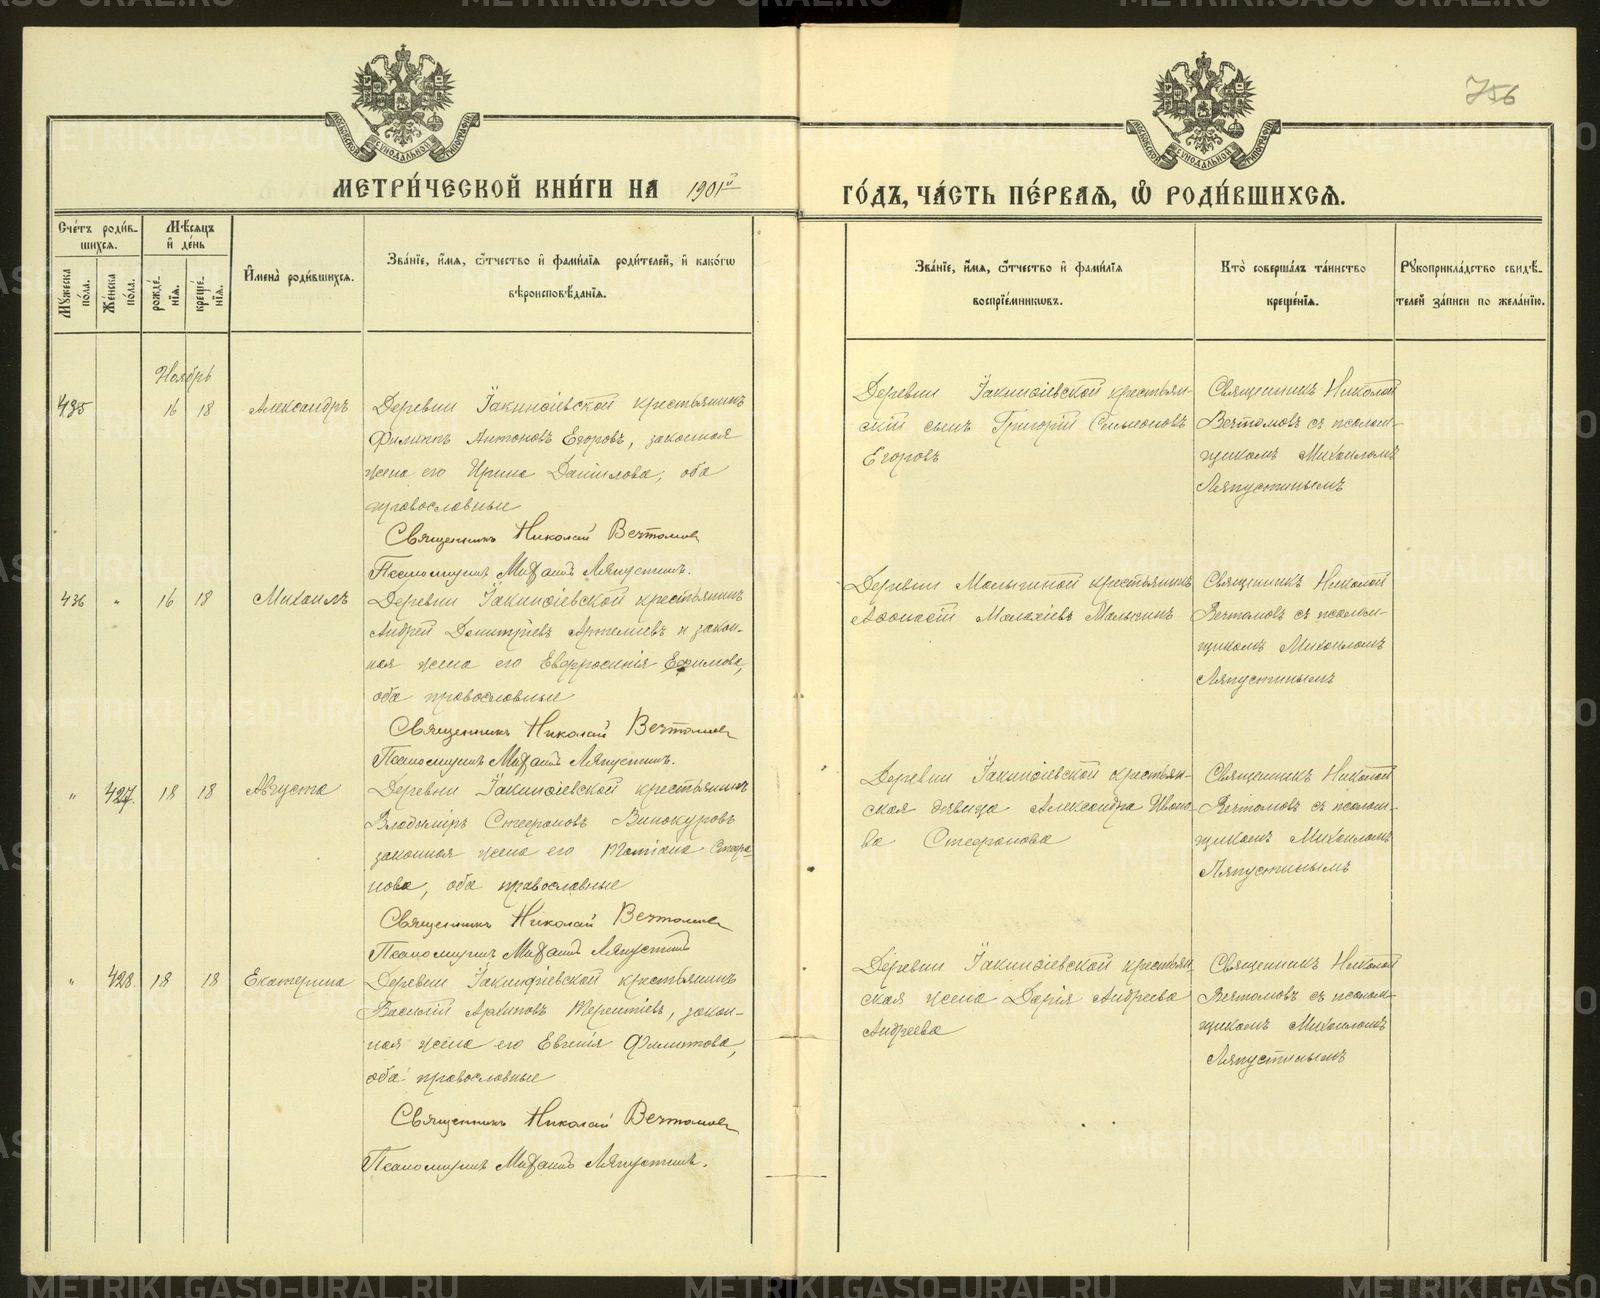 756
МЕТРИ́ЧЕСКОЙ КНИ́ГИ НА 1901й
ГО́ДЪ, ЧА́СТЬ ПЕ́РВАЯ, Ѡ҆ РОДИ́ВШИХСЯ.
Сче́тъ роди́в-
шихся.
Мѣ́сяцъ
и҆ де́нь
Му́жеска
по́ла.
Же́нска
по́ла.
рожде́-
нїя.
креще́-
нїя.
И҆мена̀ роди́вшихся.
Зва́нїе, и҆́мя, ѻ҆́тчество и҆ фами́лїя роди́телей, и҆ како́гѡ
вѣроисповѣ́данїя.
Зва́нїе, и҆́мя, ѻ҆́тчество и҆ фами́лїя
воспрїе́мникѡвъ.
Кто̀ соверша́лъ та́инство
креще́нїя.
Рукоприкла́дство свидѣ́-
телей за́писи по жела́нїю.
Ноябрь
435 16 18 Александръ
Деревни Їакинѳіевской крестьянинъ
Филиппъ Антоновъ Егоровъ, законная
жена его Ирина Даніилова, оба
православные
Священникъ Николай Вечтомов
Псаломщикъ Михаилъ Ляпустинъ.
Деревни Їакинѳіевской крестьян-
скій сынъ Григорій Симеоновъ
Егоровъ
Священникъ Николай
Вечтомовъ съ псалом-
щикомъ Михаиломъ
Ляпустинымъ
436 " 16 18 Михаилъ
Деревни Їакинѳіевской крестьянинъ
Андрей Димитріевъ Артемьевъ и закон-
ная жена его Евфросинія Ефимова,
оба православные
Священникъ Николай Вечтомов
Псаломщикъ Михаилъ Ляпустинъ.
Деревни Малыгиной крестьянинъ
Аѳонасій Малахіевъ Малыгинъ
Священникъ Николай
Вечтомовъ съ псалом-
щикомъ Михаиломъ
Ляпустинымъ
" 427. 18 18 Августа
Деревни Їакинѳіевской крестьянинъ
Владиміръ Стефановъ Винокуровъ
законная жена его Татіана Стефа-
нова, оба православные
Священникъ Николай Вечтомов
Псаломщикъ Михаилъ Ляпустинъ
Деревни Їакинѳіевской крестьян-
ская дѣвица Александра Ивано-
ва Стефанова
Священникъ Николай
Вечтомовъ съ псалом-
щикомъ Михаиломъ
Ляпустинымъ
" 428. 18 18 Екатерина
Деревни Їакинфіевской крестьянинъ
Василій Архиповъ Терентіевъ, закон-
ная жена его Евгенія Филатова,
оба православные
Священникъ Николай Вечтомов
Псаломщикъ Михаилъ Ляпустинъ.
Деревни Їакинѳіевской крестьян-
ская жена Дарія Андреева
Андреева
Священникъ Николай
Вечтомовъ съ псалом-
щикомъ Михаиломъ
Ляпустинымъ